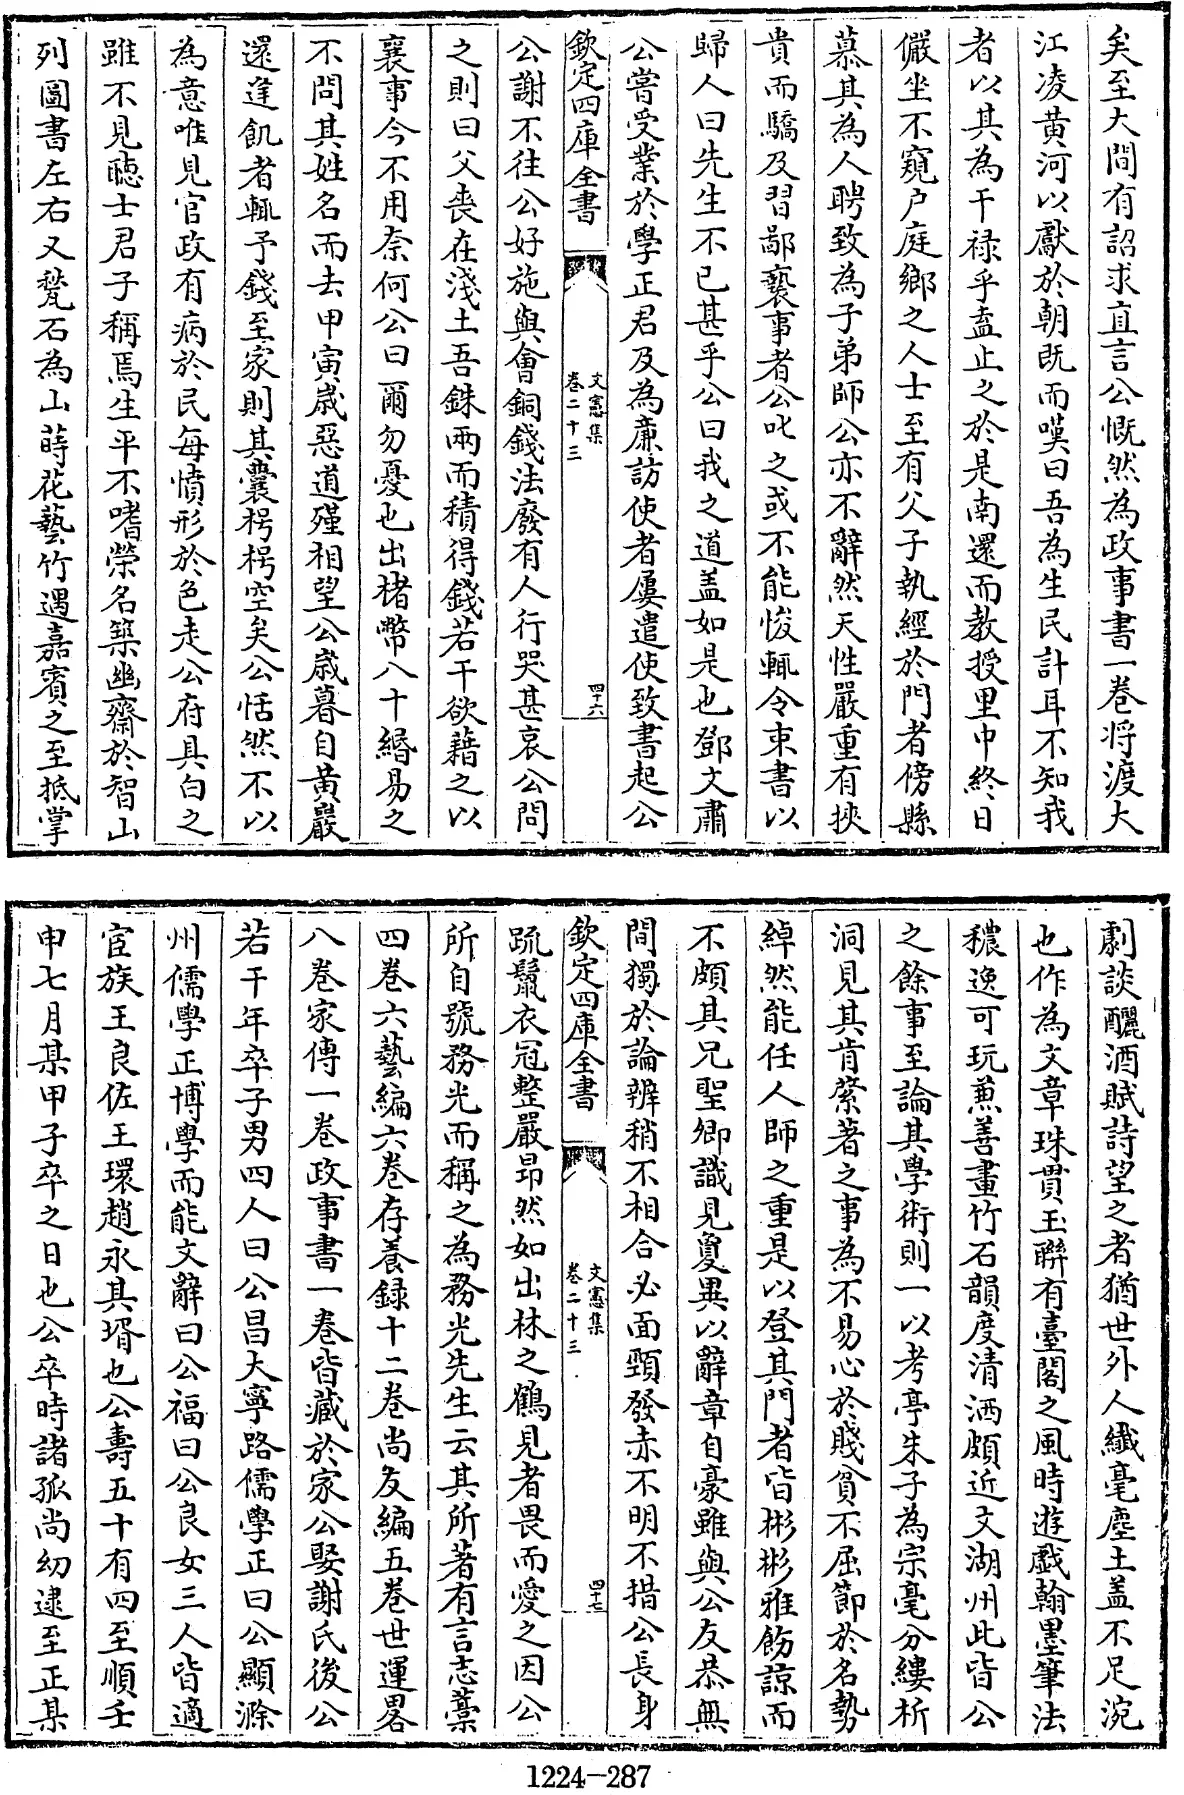 矣至大間有詔求直言公慨然為政事書一卷将渡大
江凌黄河以獻於朝既而嘆曰吾為生民計耳不知我
者以其為干禄乎盍止之於是南還而教授里中終日
儼坐不窺户庭鄉之人士至有父子執經於門者傍縣
慕其為人聘致為子弟師公亦不辭然天性嚴重有挾
貴而驕及習鄙褻事者公叱之或不能悛輒令束書以
歸人曰先生不已甚乎公曰我之道盖如是也鄧文肅
公嘗受業於學正君及為亷訪使者屢遣使致書起公
欽定四庫全書
文憲集
卷二十三
四十六
公謝不往公好施與會銅錢法廢有人行哭甚哀公問
之則曰父喪在淺土吾銖兩而積得錢若干欲藉之以
襄事今不用奈何公曰爾勿憂也出楮幣八十緡易之
不問其姓名而去甲寅嵗惡道殣相望公嵗暮自黄巖
還逢飢者輒予錢至家則其囊枵枵空矣公恬然不以
為意唯見官政有病於民每憤形於色走公府具白之
雖不見聽士君子稱焉生平不嗜榮名築幽齋於智山
列圖書左右又甃石為山蒔花藝竹遇嘉賓之至抵掌
劇談釃酒賦詩望之者猶世外人纎毫塵土盖不足浼
也作為文章珠貫玉聨有臺閣之風時遊戲翰墨筆法
穠逸可玩兼善畫竹石韻度清洒頗近文湖州此皆公
之餘事至論其學術則一以考亭朱子為宗毫分縷析
洞見其肯綮著之事為不易心於賤貧不屈節於名勢
綽然能任人師之重是以登其門者皆彬彬雅飭諒而
不頗其兄聖卿識見夐異以辭章自豪雖與公友恭無
間獨於論辨稍不相合必面頸發赤不明不措公長身
欽定四庫全書
文憲集
卷二十三
四十七
疏鬚衣冠整嚴昂然如出林之鶴見者畏而愛之因公
所自號務光而稱之為務光先生云其所著有言志藁
四卷六藝編六卷存養録十二卷尚友編五卷世運畧
八卷家傳一卷政事書一卷皆藏於家公娶謝氏後公
若干年卒子男四人曰公昌大寧路儒學正曰公顯滁
州儒學正博學而能文辭曰公福曰公良女三人皆適
宦族王良佐王環趙永其壻也公壽五十有四至順壬
申七月某甲子卒之日也公卒時諸孤尚幼逮至正某
1224-287